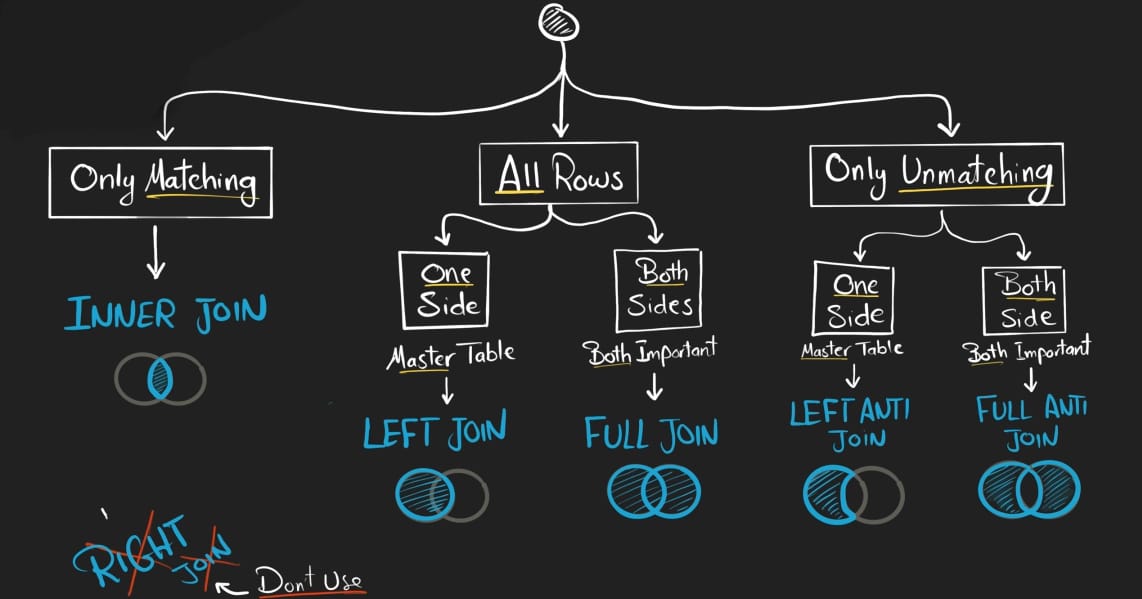 Only Matching
INNER JOIN
All Rows
One
Side
Master Table
LEFT JOIN
Both
Sides
Both Important
FULL JOIN
Only Unmatching
One
Side
Master Table
LEFT ANTI
JOIN
Both
Side
Both Important
FULL ANTI
JOIN
RIGHT
JOIN
Don't Use